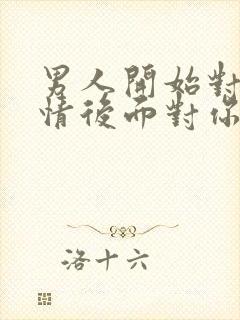 男人開始對
情後而對你
洛十六